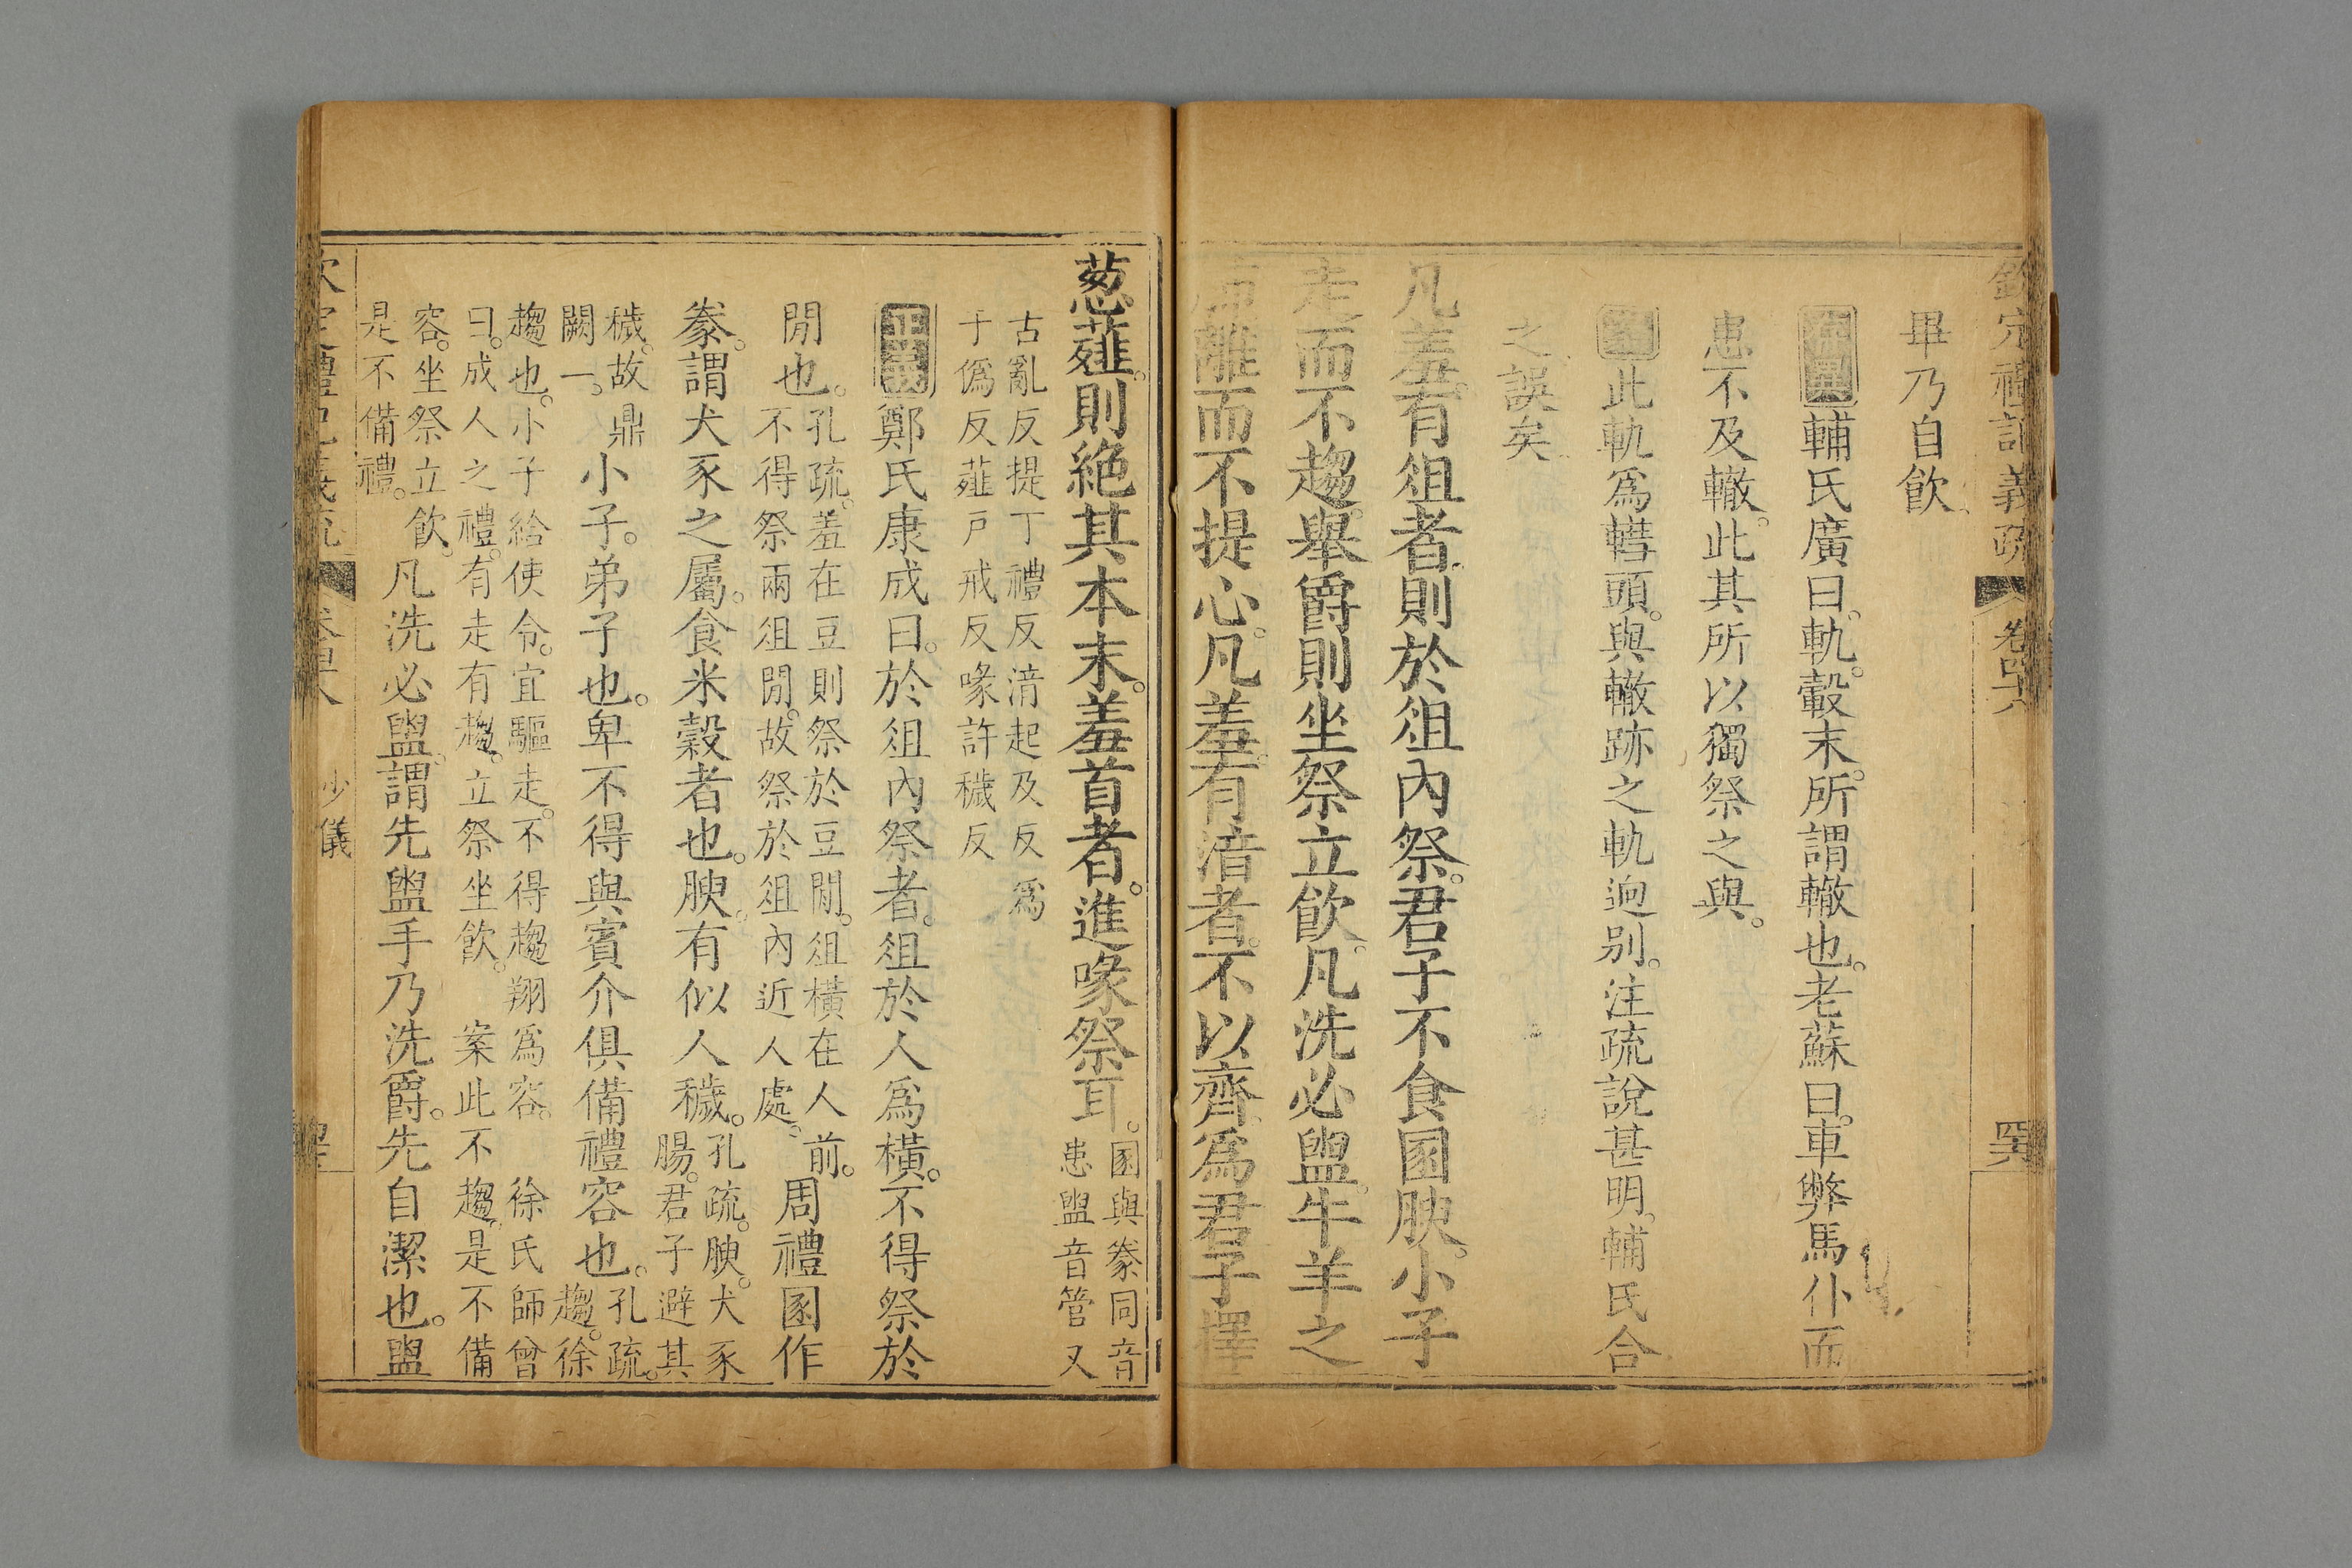 欽定禮記義疏 卷四十八
畢乃自飲
存異輔氏廣曰。軌。轂末。所謂轍也。老蘇曰。車弊馬仆而
患不及轍。此其所以獨祭之與。
案此軌爲轊頭。與轍跡之軌逈别。注疏說甚明。輔氏合
之誤矣
凡羞。有俎者。則於俎內祭。君子不食圂腴。小子
走而不趨。舉爵則坐祭立飲。凡洗必盥。牛羊之
肺離而不提心。凡羞。有湆者。不以齊。爲君子擇
葱薤。則絶其本末。羞首者。進喙祭耳。圂與豢同音患盥音管又
古亂反提丁禮反湆起及反爲
于僞反薤戸戒反喙許穢反
正義鄭氏康成曰。於俎內祭者。俎於人爲橫。不得祭於
閒也。孔疏。羞在豆則祭於豆閒。俎橫在人前。不得祭兩俎閒。故祭於俎內近人處。周禮圂作
豢。謂犬豕之屬。食米穀者也。腴。有似人穢。孔疏。腴。犬豕腸。君子避其
穢。故鼎闕一。小子。弟子也。卑不得與賓介俱備禮容也。孔疏。趨。徐
趨也。小子給使令。宜驅走。不得趨翔爲容。 徐氏師曾
曰。成人之禮。有走有趨。立祭坐飲。 案此不趨。是不備
容。坐祭立飲。是不備禮。凡洗必盥。謂先盥手乃洗爵。先自潔也。盥
少儀